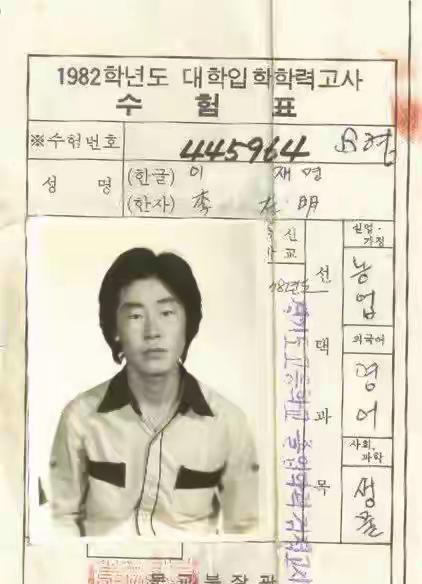 1982학년도 대학입학학력고사
수 험 표
※수험번호 445964
성 명 (한글) 이 재명
(한자) 李 在 明
신
교
선 택 과 목
실업·가정
농업
외국어
영어
사회, 과학
생물
고등학교 졸업학력 검정고시
문교부장관